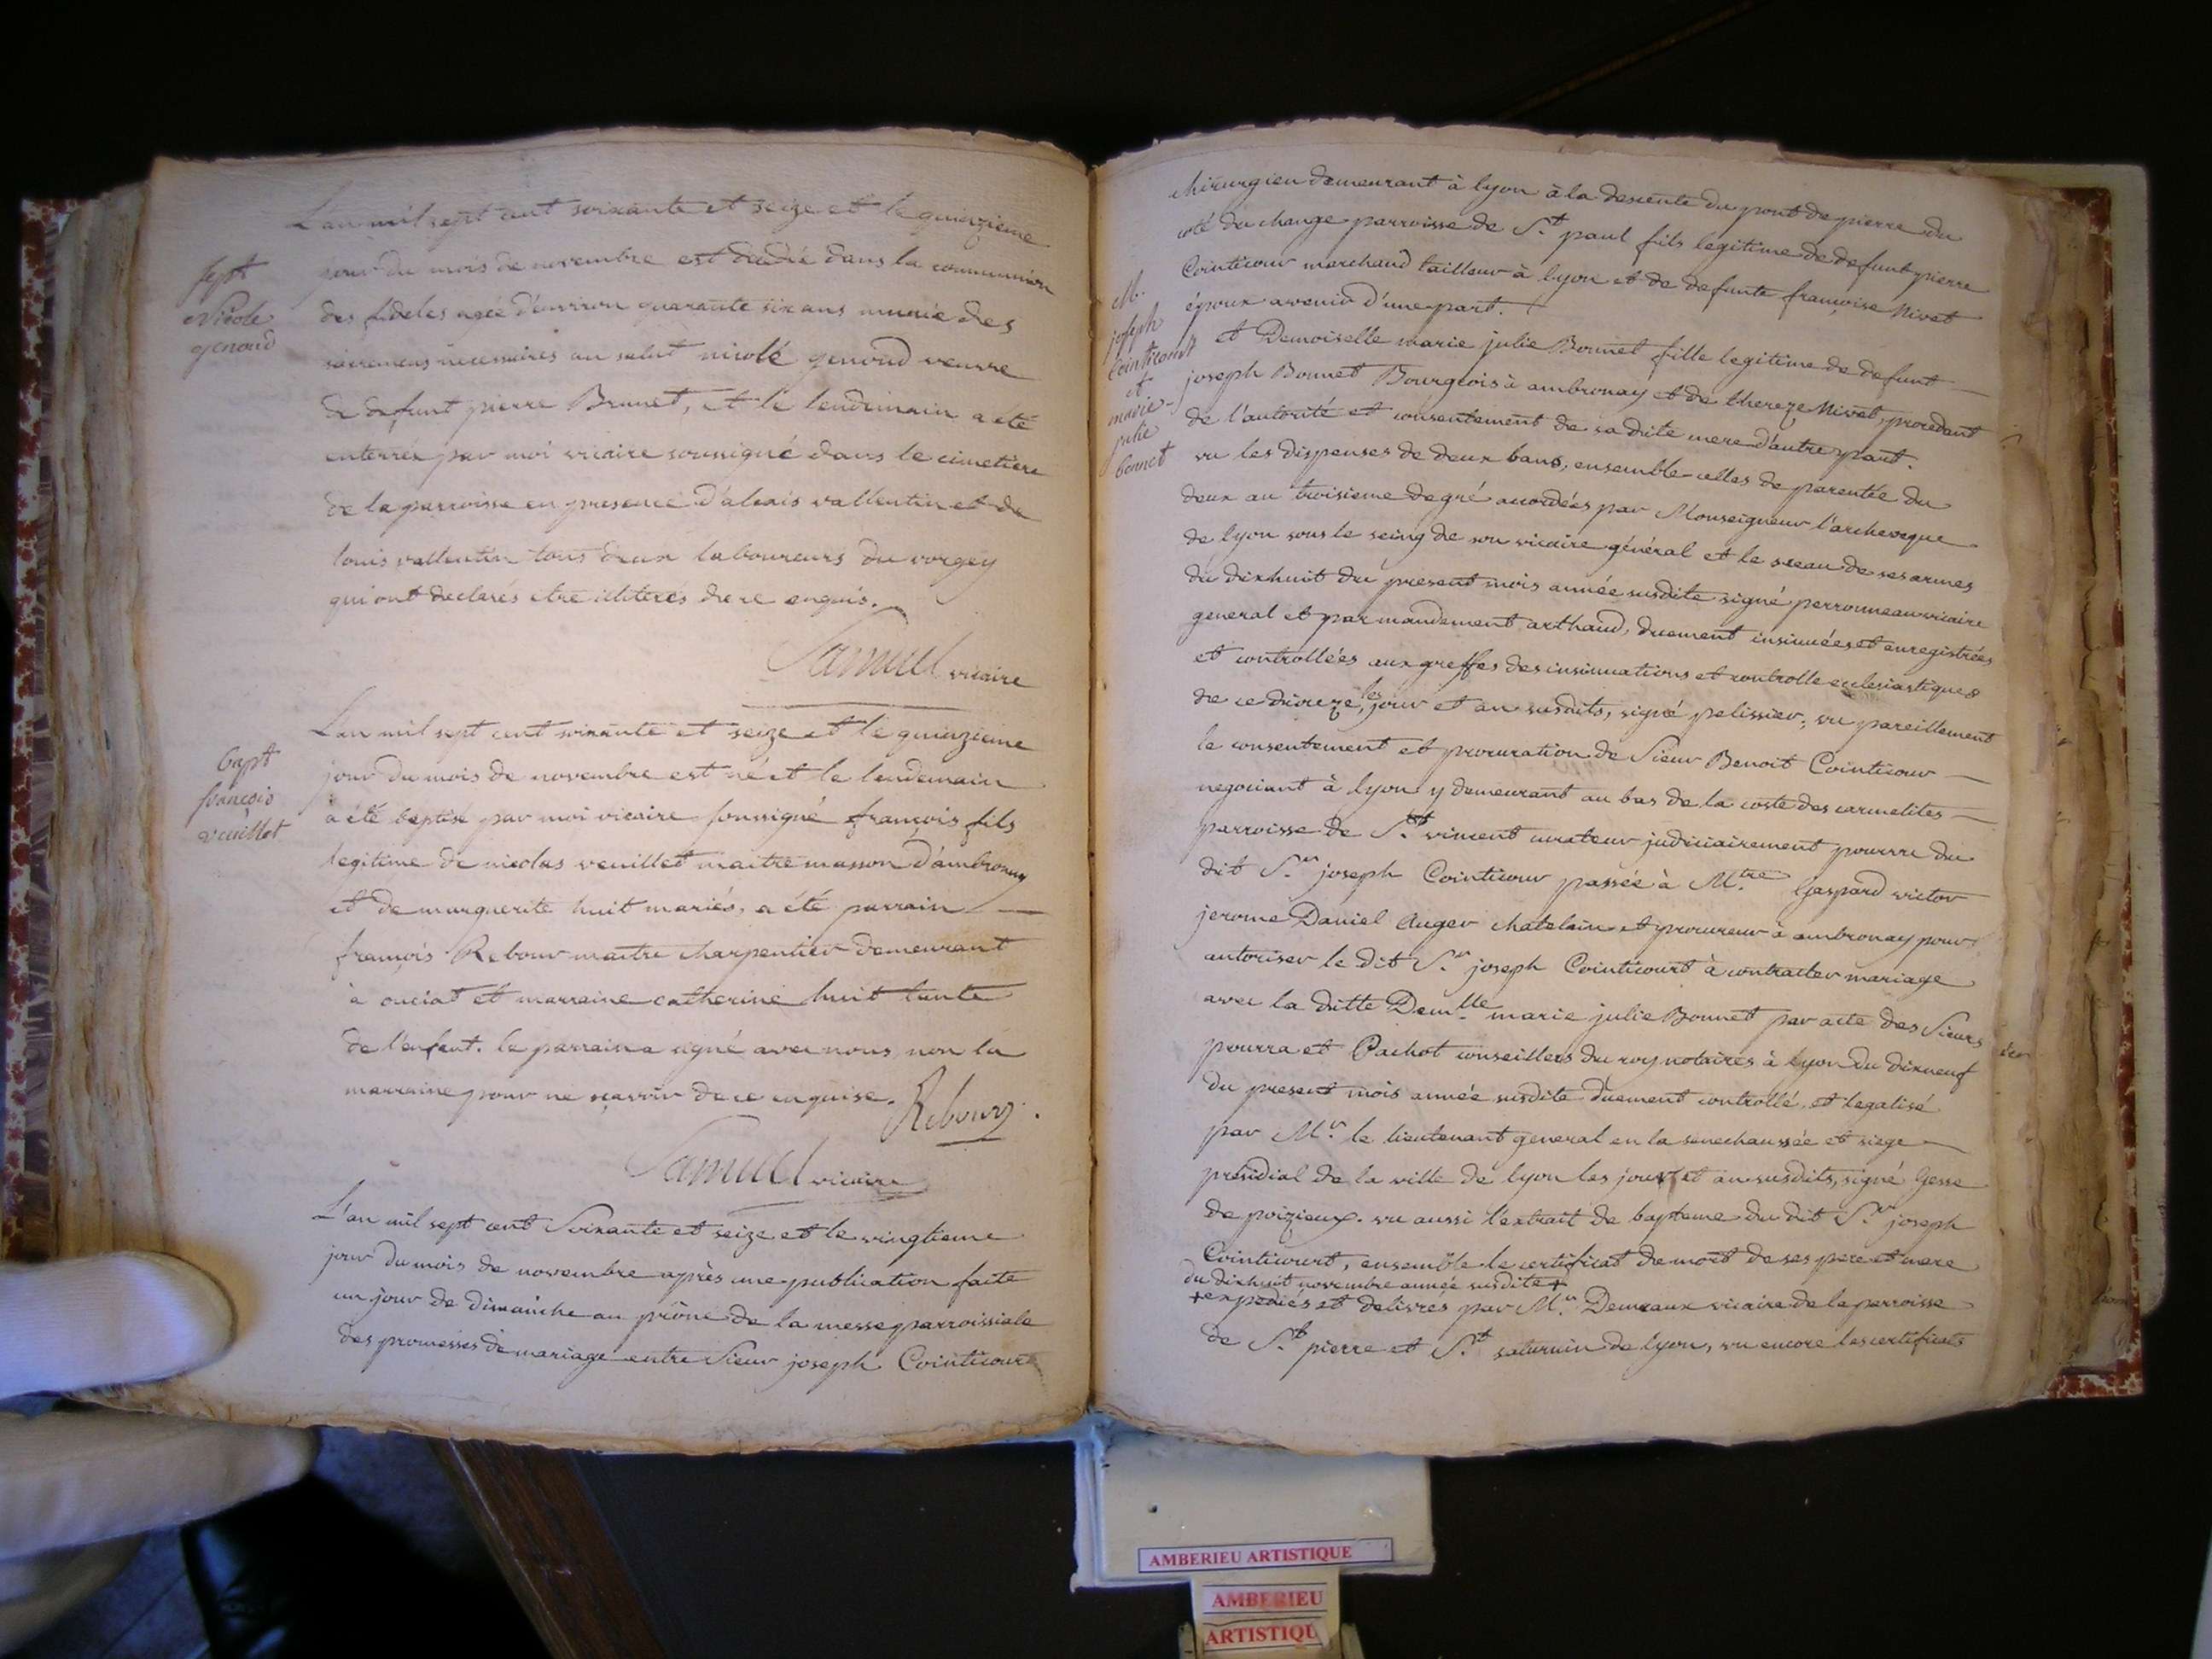 L'an mil sept cent soixante et seize et le quinzieme
jour du mois de novembre est decedée dans la communion
des fideles agée d'environ quarante six ans munie des
sacremens necessaires au salut nicole genoud veuve
de defunt pierre Brunet, et le lendemain a été
enterrée par moi vicaire soussigné dans le cimetiere
de la parroisse en presence d'alexis vallentin et de
louis vallentin tous deux laboureurs du vorgey
qui ont declarés etre illiterés de ce enquis.
Samuel vicaire
Sept
Nicole
genoud
L'an mil sept cent soixante et seize et le quinzieme
jour du mois de novembre est né et le lendemain
a été baptisé par moi vicaire soussigné françois fils
legitime de nicolas veuillet maitre masson d'ambronay
et de marguerite huit mariés, a été parrain
françois Rebour maitre charpentier demeurant
à ouciat et marraine catherine huit tante
de l'enfant. le parrain a signé avec nous non la
marraine pour ne sçavoir de ce enquise.
Rebourg.
Samuel vicaire
bapt
françois
veuillet
L'an mil sept cent Soixante et seize et le vingtieme
jour du mois de novembre après une publication faite
un jour de dimanche au prône de la messe parroissiale
des promesses de mariage entre Sieur joseph Cointicourt
chirurgien demeurant à lyon à la descente du pont de pierre du
coté du change parroisse de St paul fils legitime de defunt pierre
Cointicour marchand tailleur à lyon et de defunte françoise Nivet
époux avenir d'une part.
et Demoiselle marie julie Bonnet fille legitime de defunt
joseph Bonnet Bourgeois à ambronay et de thereze Nivet, procedant
de l'autorité et consentement de sa dite mere d'autre part.
vu les dispenses de deux bans, ensemble celles de parentée du
deux au troisieme degré accordées par Monseigneur l'archeveque
de lyon sous le seing de son vicaire général et le sceau de ses armes
du dixhuit du present mois année susdite signé perronneau vicaire
general et par mandement arthaud, duement insinuées et enregistrées
et controllées aux greffes des insinuations et controlle ecclesiastiques
de ce dioceze, les jour et an susdits, signé pelissier, vu pareillement
le consentement et procuration de Sieur Benoit Cointicour
negociant à lyon y demeurant au bas de la coste des carmelites
parroisse de St vincent curateur judiciairement pourvu du
dit Sr joseph Cointicour passée à Mtre Gaspard victor
jerome Daniel Auger chatelain et procureur à ambronay pour
autoriser le dit Sr joseph Cointicourt à contracter mariage
avec la ditte Demlle marie julie Bonnet par acte des Sieurs
pourra et Pachot conseillers du roy notaires à lyon du dixneuf
du present mois année susdite duement controllé, et legalisé
par Mr le lieutenant general en la senechaussée et siege
présidial de la ville de lyon les jour et an susdits, signé Gesse
de poizieux. vu aussi l'extrait de bapteme du dit Sr joseph
Cointicourt, ensemble le certificat de mort de ses pere et mere
du dixhuit novembre année susdite +
+ expediés et delivrés par Mr Demeaux vicaire de la parroisse
de St pierre et St saturnin de lyon, vu encore les certificats
M.
joseph
Cointicourt
et
marie
julie
bonnet
AMBERIEU ARTISTIQUE
AMBERIEU
ARTISTIQU